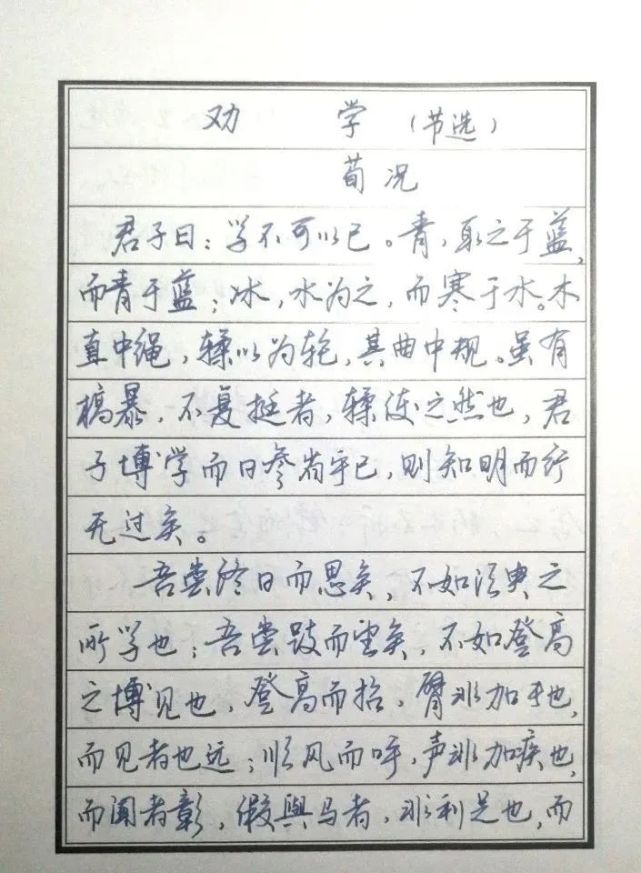 劝 学 （节选）
荀况
君子曰：学不可以已。青，取之于蓝，
而青于蓝；冰，水为之，而寒于水。木
直中绳，輮以为轮，其曲中规。虽有
槁暴，不复挺者，輮使之然也，君
子博学而日参省乎己，则知明而行
无过矣。
吾尝终日而思矣，不如须臾之
所学也；吾尝跂而望矣，不如登高
之博见也，登高而招，臂非加长也，
而见者也远；顺风而呼，声非加疾也，
而闻者彰，假舆马者，非利足也，而